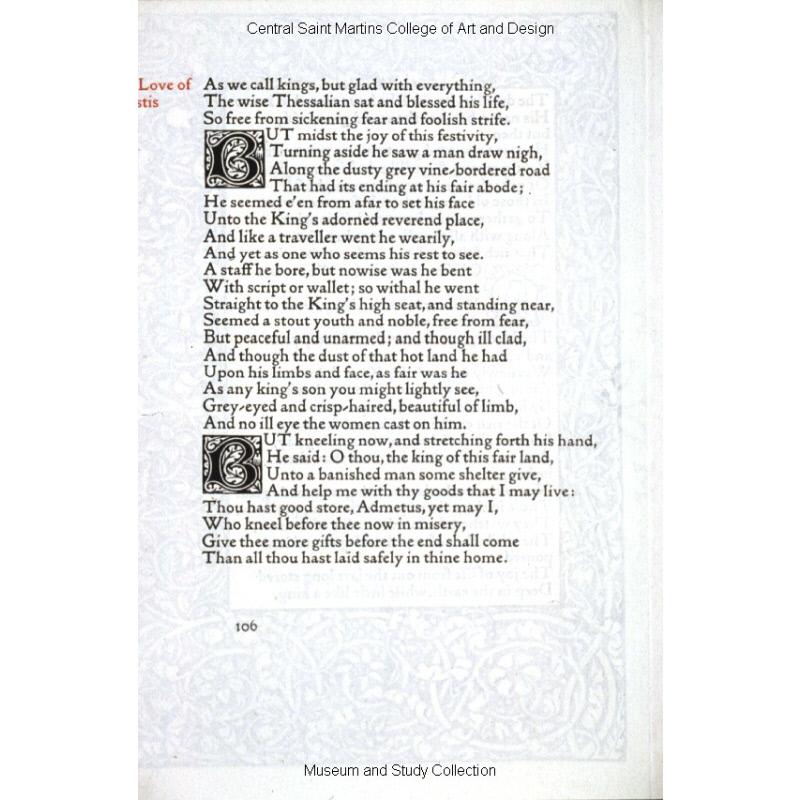 Central Saint Martins College of Art and Design
Love of
stis
As we call kings, but glad with everything,
The wise Thessalian sat and blessed his life,
So free from sickening fear and foolish strife.
BUT midst the joy of this festivity,
Turning aside he saw a man draw nigh,
Along the dusty grey vine-bordered road
That had its ending at his fair abode;
He seemed e'en from afar to set his face
Unto the King's adornèd reverend place,
And like a traveller went he wearily,
And yet as one who seems his rest to see.
A staff he bore, but nowise was he bent
With script or wallet; so withal he went
Straight to the King's high seat, and standing near,
Seemed a stout youth and noble, free from fear,
But peaceful and unarmed; and though ill clad,
And though the dust of that hot land he had
Upon his limbs and face, as fair was he
As any king's son you might lightly see,
Grey-eyed and crisp-haired, beautiful of limb,
And no ill eye the women cast on him.
BUT kneeling now, and stretching forth his hand,
He said: O thou, the king of this fair land,
Unto a banished man some shelter give,
And help me with thy goods that I may live:
Thou hast good store, Admetus, yet may I,
Who kneel before thee now in misery,
Give thee more gifts before the end shall come
Than all thou hast laid safely in thine home.
106
Museum and Study Collection